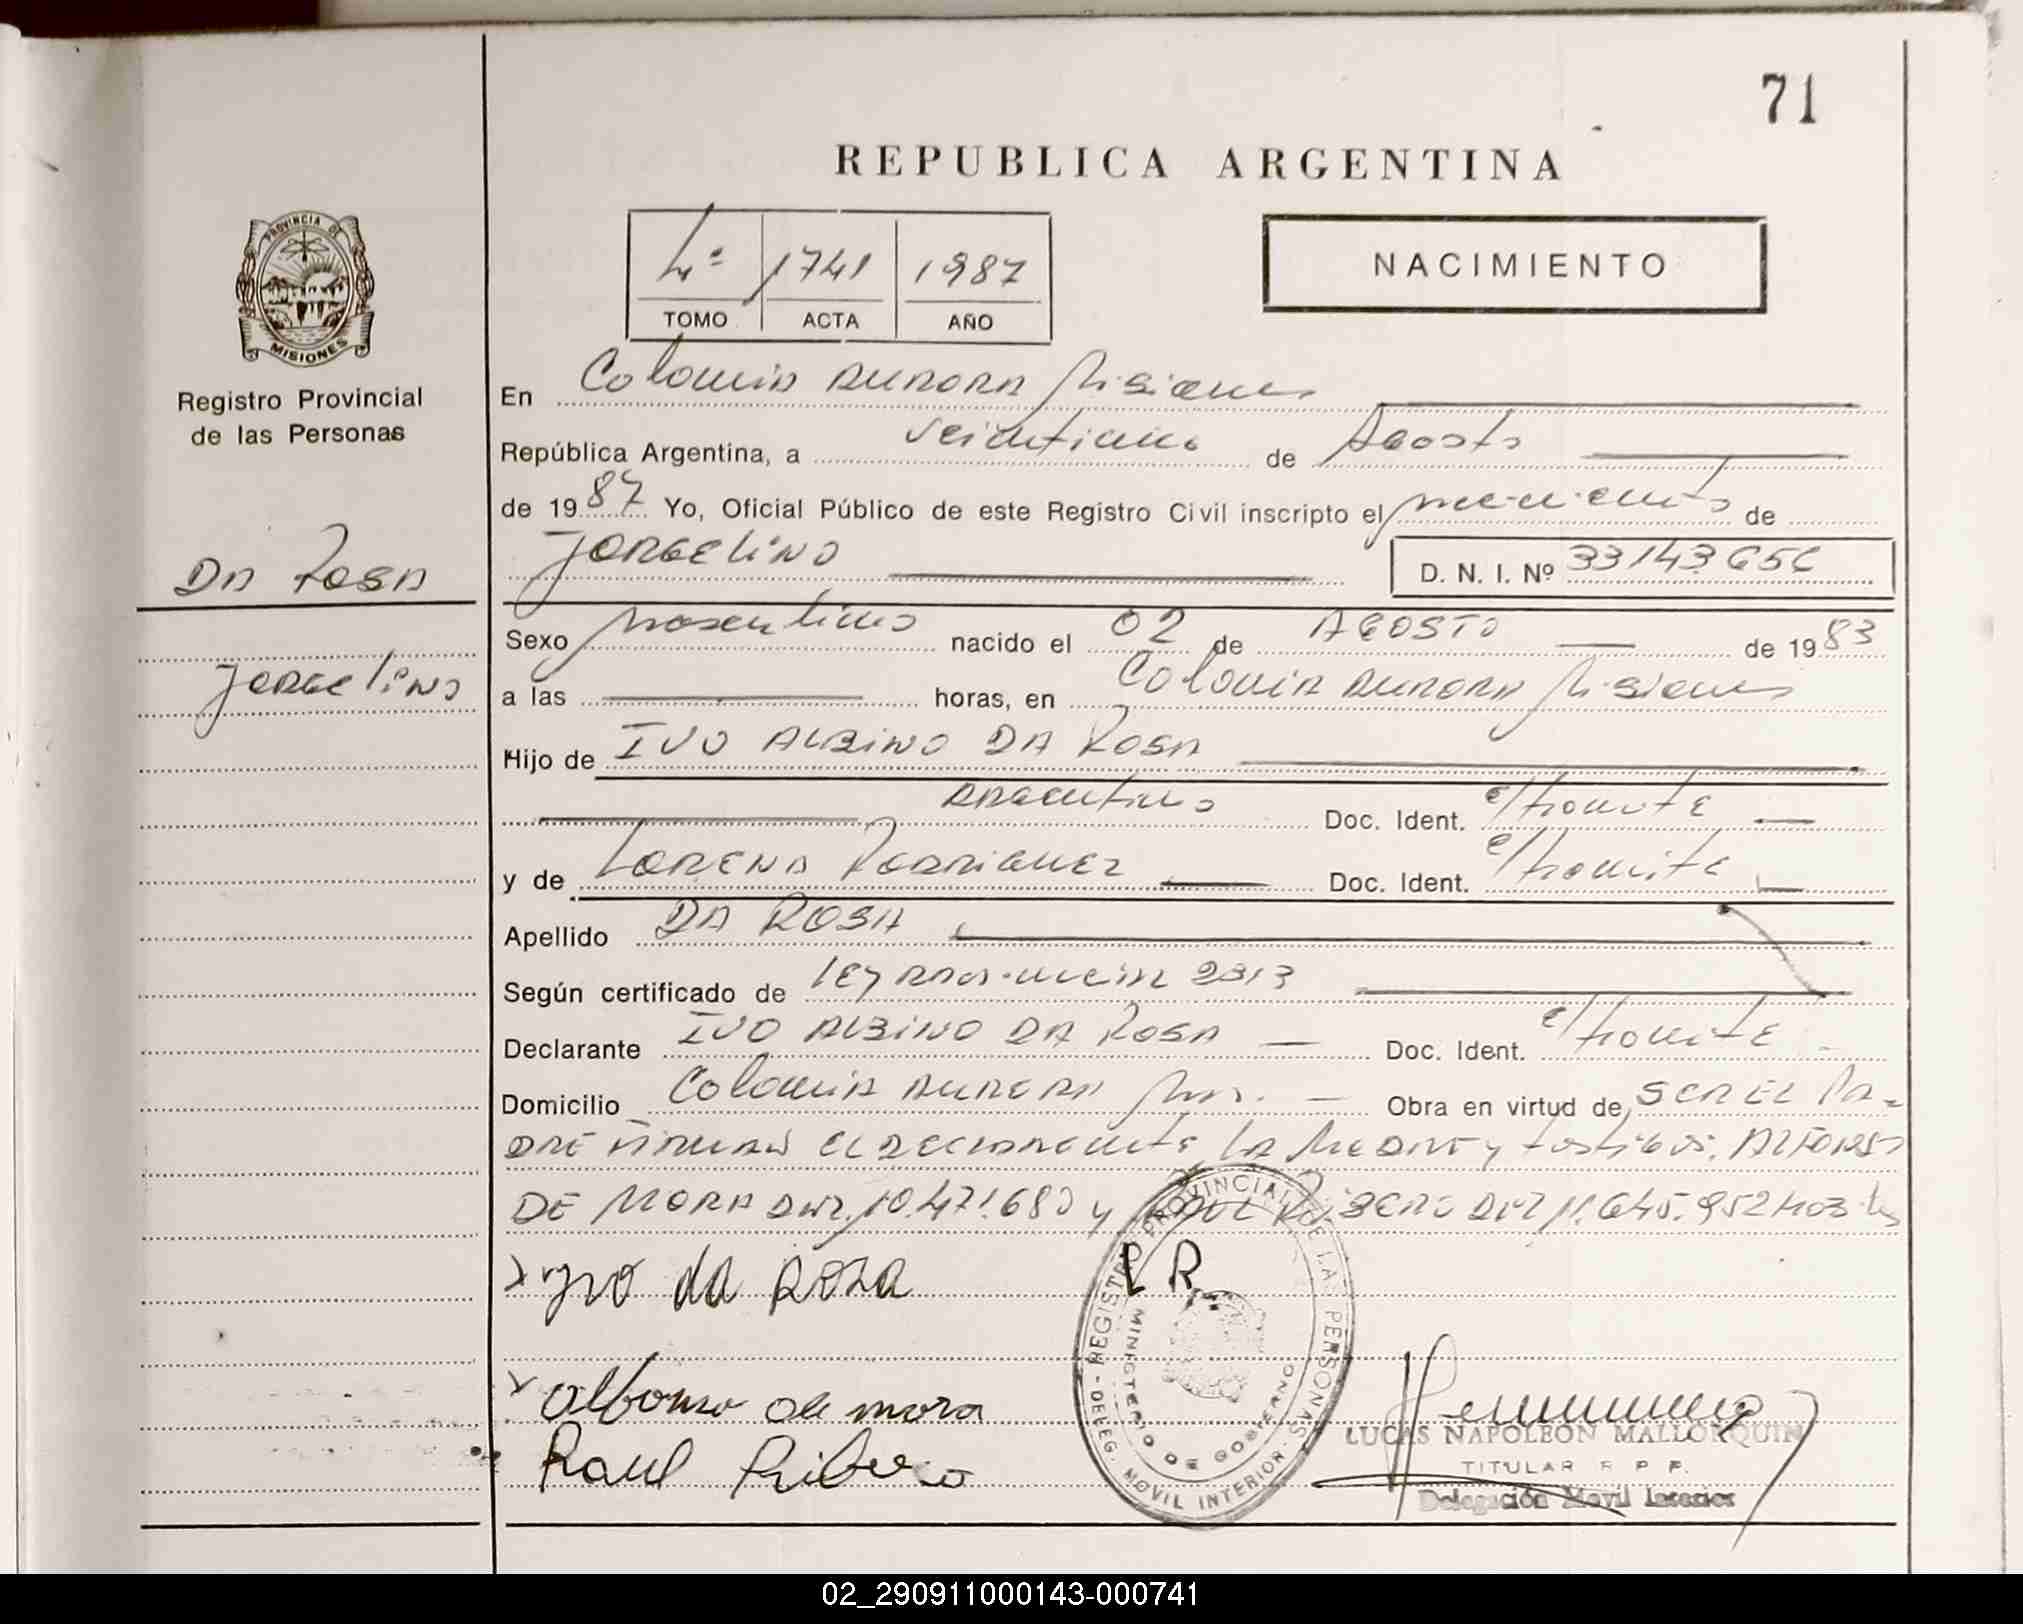 71
REPUBLICA ARGENTINA
PROVINCIA DE
MISIONES
Registro Provincial
de las Personas
4º 1741 1987
TOMO ACTA AÑO
NACIMIENTO
En Colonia Aurora Misiones
República Argentina, a veintiuno de Agosto
de 1987 Yo, Oficial Público de este Registro Civil inscripto el nacimiento de
Jorgelino D. N. I. Nº 33143656
Da Rosa
Jorgelino
Sexo masculino nacido el 02 de AGOSTO de 1983
a las horas, en Colonia Aurora Misiones
Hijo de IVO ALBINO DA ROSA
argentino Doc. Ident. e/tramite
y de LORENA RODRIGUEZ Doc. Ident. e/tramite
Apellido DA ROSA
Según certificado de ley 2313
Declarante IVO ALBINO DA ROSA Doc. Ident. e/tramite
Domicilio Colonia Aurora Mnes. Obra en virtud de SER EL PA-
DRE FIRMAN el declarante, LA MADRE y testigos: ALFONSO
DE MORA DNI. 10.471.680 y RAUL RIBERO DNI 11.645.952
yvo da Roza
L R
alfonso de mora
Raul Ribero
REGISTRO PROVINCIAL DE LAS PERSONAS
MINISTERIO DE GOBIERNO
DELEG. MOVIL INTERIOR
LUCAS NAPOLEON MALLORQUIN
TITULAR R P P.
Delegación Movil Interior
02_290911000143-000741